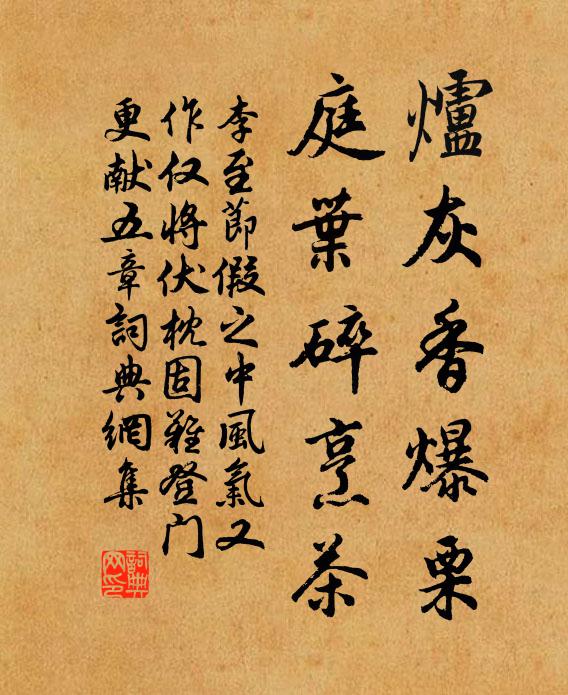 爐灰香爆栗
庭葉碎烹茶
李至節假之中風氣又
作仅将伏枕固難登门
更献五章詞典網集
詞典网印